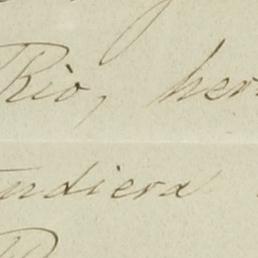 Rio, her
ndiera